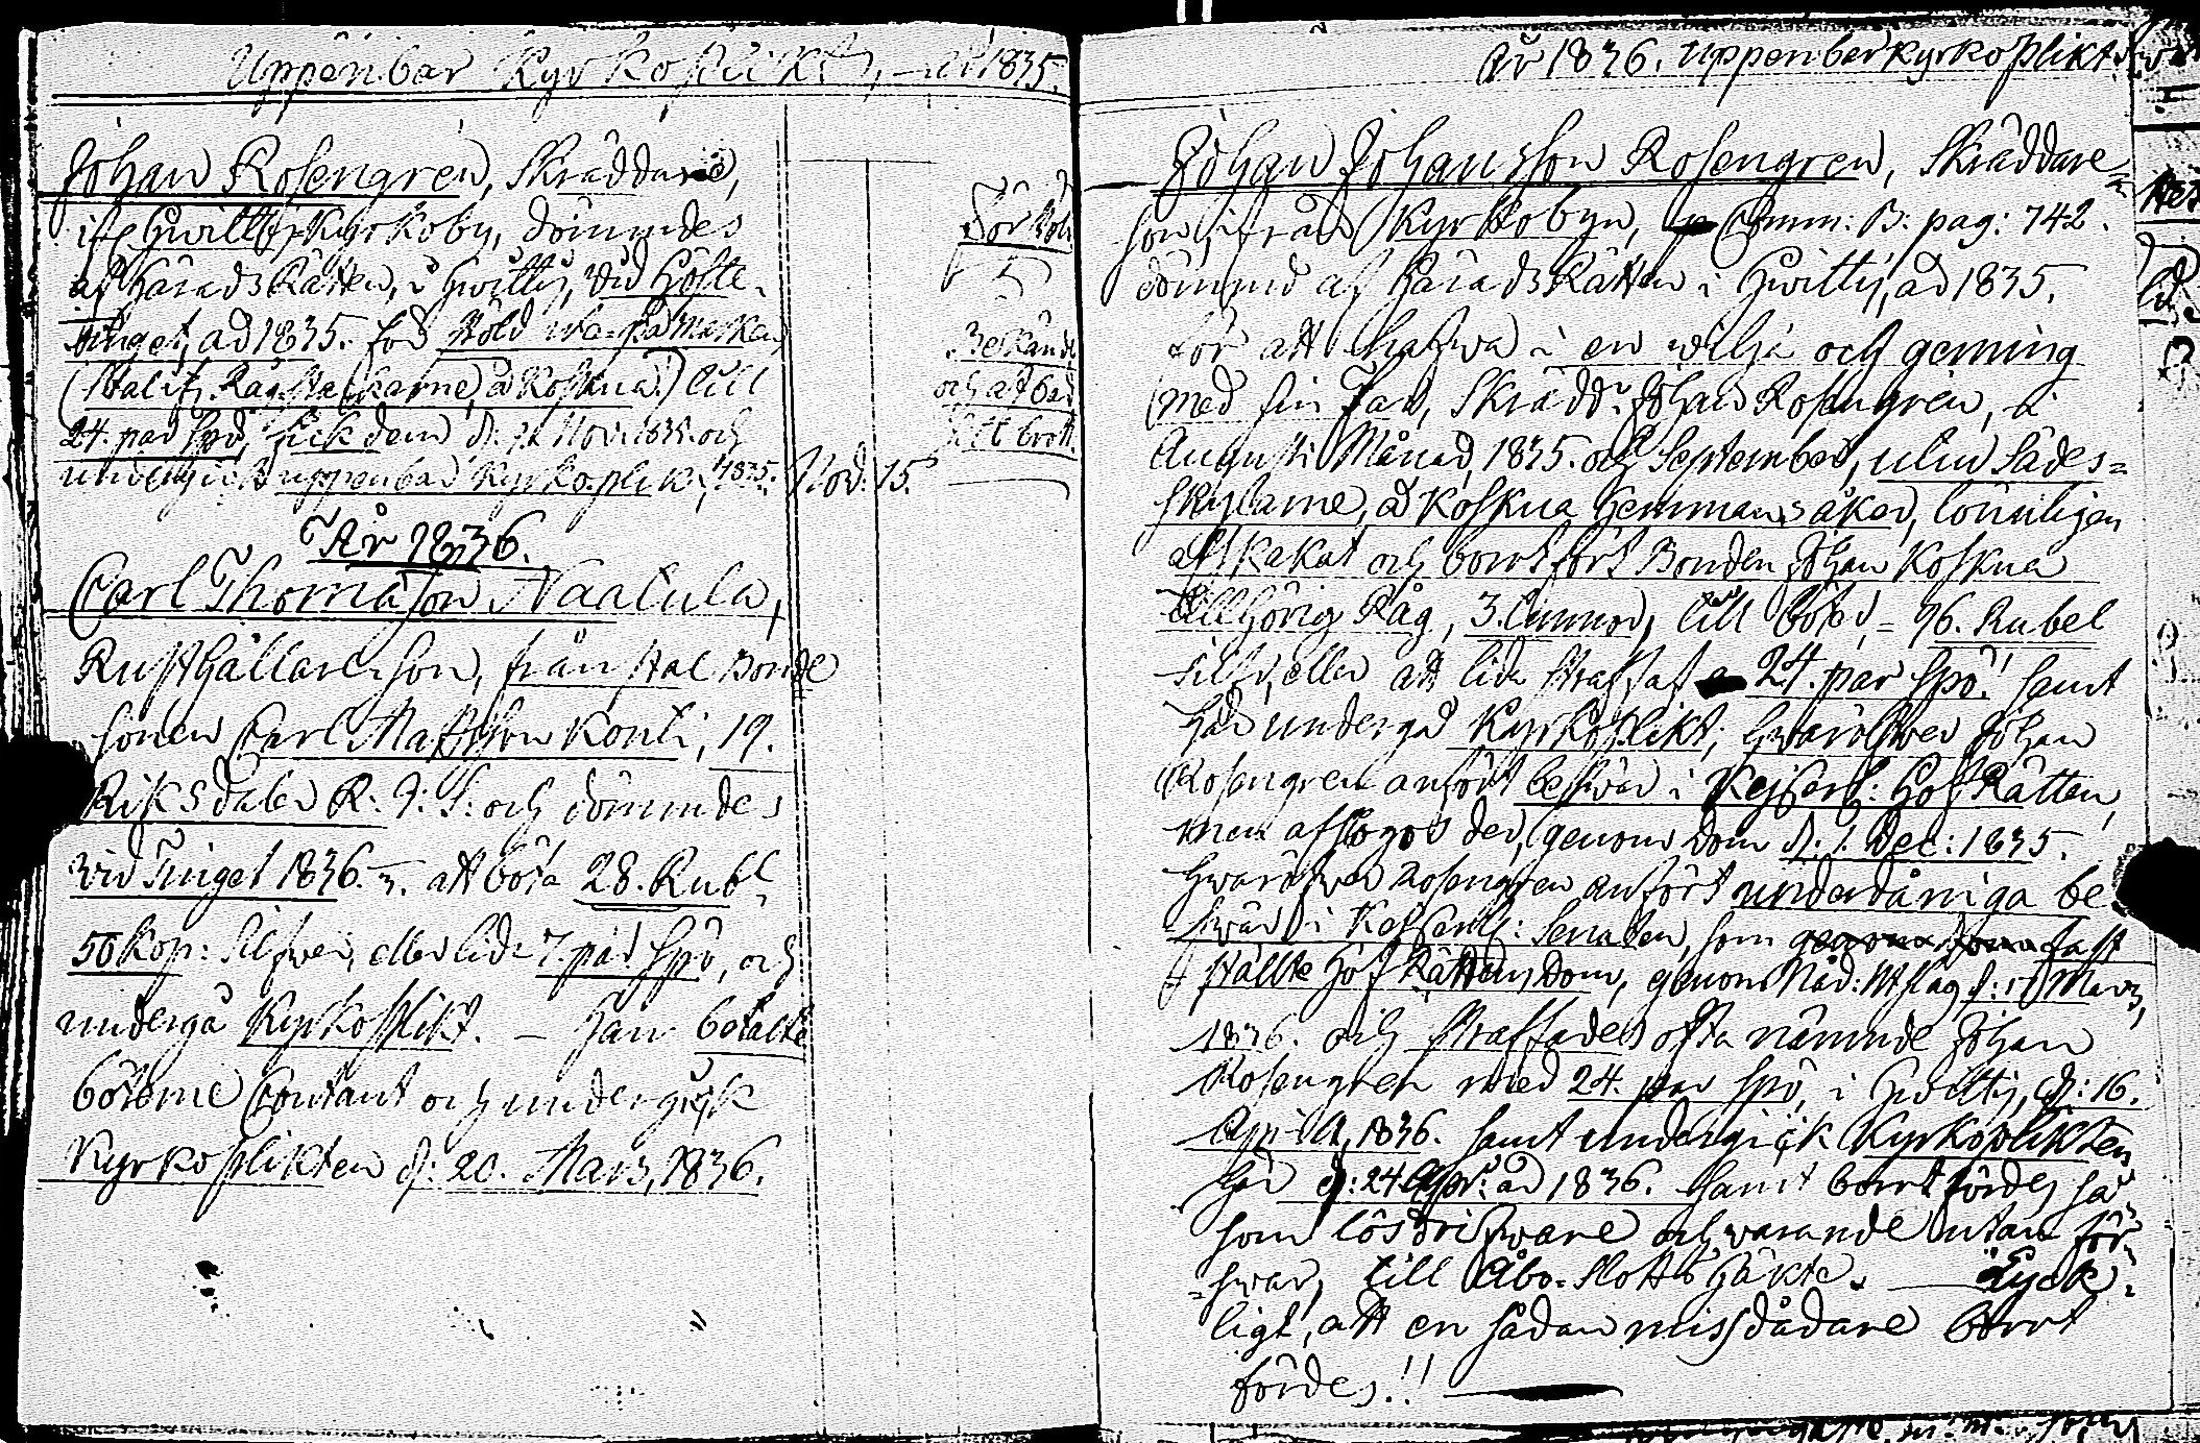 Uppenbar Kyrkoplikt, år 1835.
Johan Rosengren, Skräddare,
ifr. Hwittis Kyrkoby, dömmdes
af HäradsRätten, i Hwittis, vid Höste-
tinget, åd 1835. för Stöld på marken
(Stalit Råg å Koskua) till
24. par spö, fick dem d: Nov. 1835. och
undergick uppenbar Kyrkoplikt, 1835. Nov: 15.
År 1836.
Carl Thomasson Naatula,
Rusthållareson, från stal Bonde
sonen Carl Matsson Konti, 19.
Riksdaler R: G: S: och dömmdes
vid Tinget 1836. att böta 28. Rubl
50 Kop: Silfwer, eller lida 7. par spö, och
undergå Kyrkoplikt. – Han betalte
böterne Contant och undergick
Kyrkoplikten d: 20. Mars, 1836.
Bekände
och afbad
sitt brott
År 1836. Uppenbar Kyrkoplikt.
Johan Johansson Rosengren, Skräddare-
son, ifrån Kyrkobyn, Comm: B: pag: 742.
dömmd af HäradsRätten i Hwittis, åd 1835.
för att hafwa i en wilja och gerning
med sin Far, Skrädd: Johan Rosengren, i
Augusti Månad, 1835. och September, utur Sädes=
skylarne, å Koskua Hemmans åker, lönnligen
afskakat och bortfört Bonden Johan Koskua
tillhörig Råg, 3. tunnor, till böter, = 96. Rubel
Silfr, eller att lida straff af 24. par spö! samt
här undergå Kyrkoplikt; hwaröfwer Johan
Rosengren anfört beswär i Kejserl: HofRätten,
men afslogos der, genom Dom d. 1. Dec: 1835.
Hwaröfwer Rosengren anfört underdåniga be-
swär i Kejserl: Senaten, som genom dom fast
ställte HofRättens Dom, genom Nåd: Utslag d: Mars,
1836. och straffades ofta nämnde Johan
Rosengren med 24. par spö, i Hwittis, d: 16.
April, 1836. samt undergick Kyrkoplikten
här d: 24 Apr: åd 1836. Samt bortfördes så
som lösdrifware och warande utan för-
=swar, till Åbo-Slotts Häkte. — Lyck-
ligt, att en sådan missdådare bort
fördes.!! —